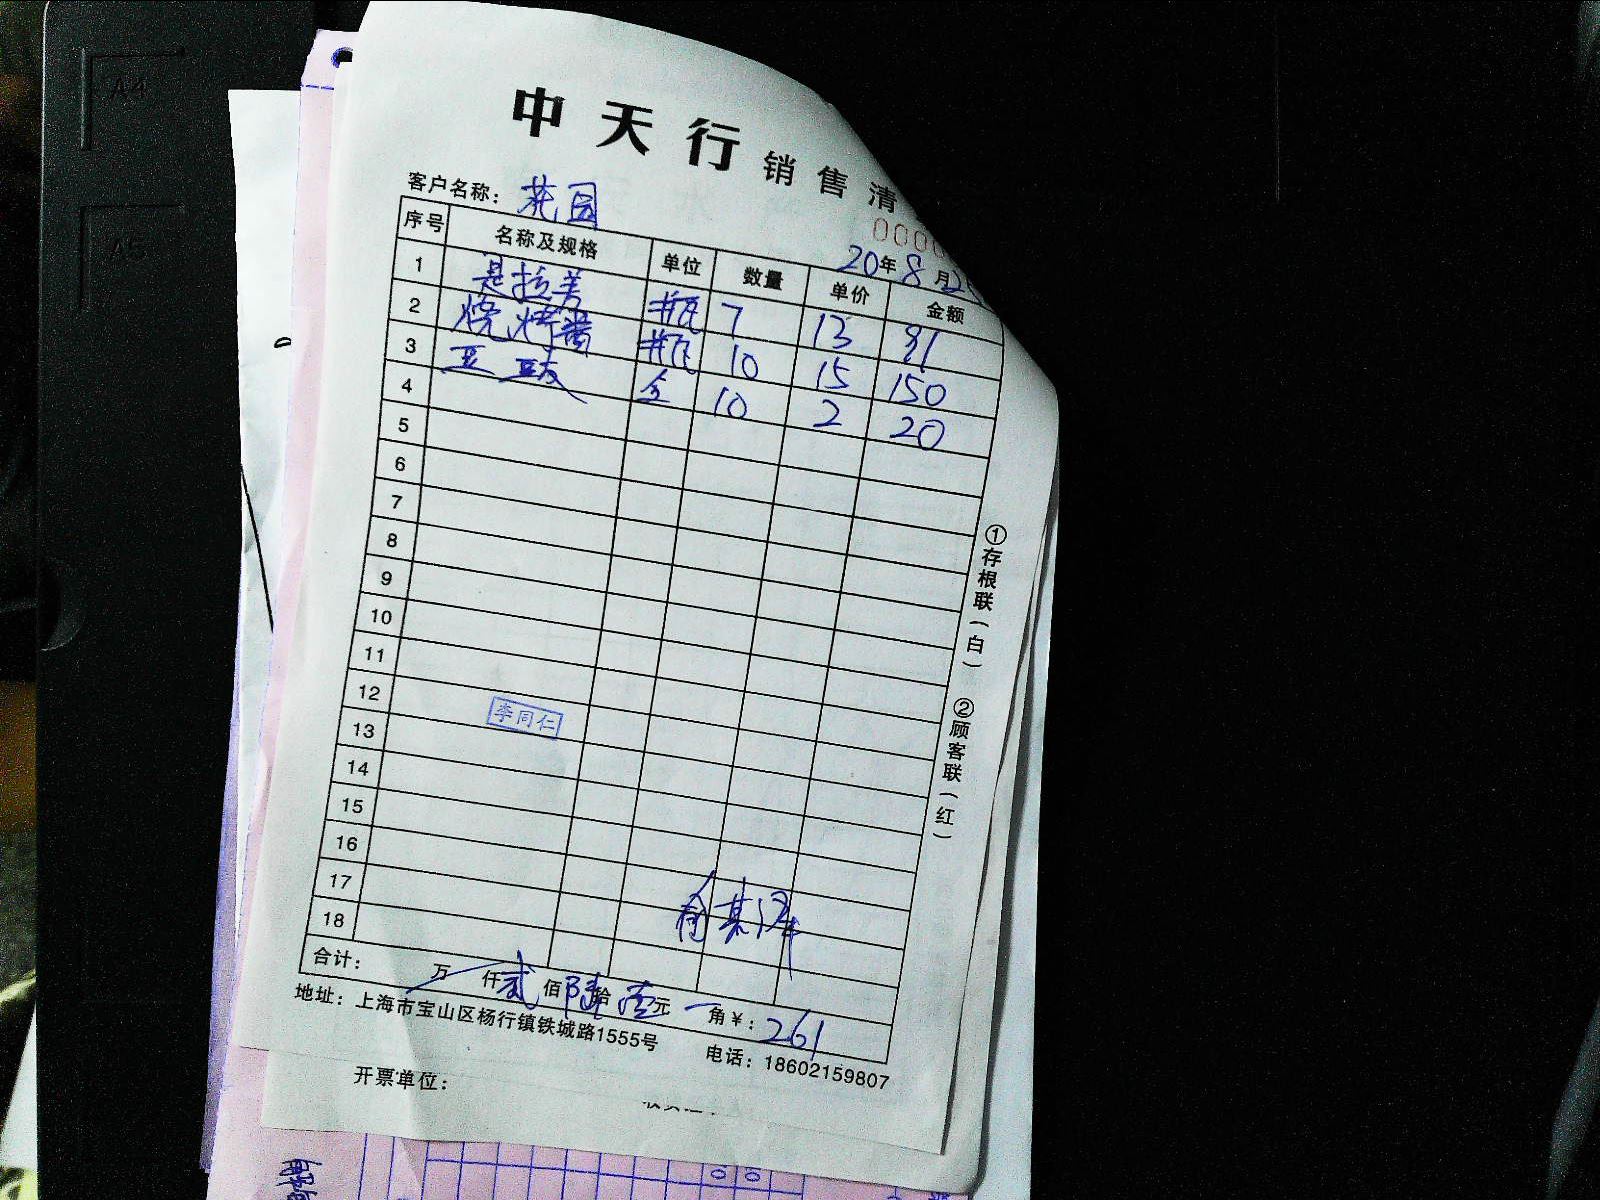 A4
A5
中天行 销售清
客户名称: 花园
0000
20年8月2
序号 名称及规格 单位 数量 单价 金额
1 是拉差 瓶 7 13 91
2 烧烤酱 瓶 10 15 150
3 豆豉 合 10 2 20
4
5
6
7
8
9
10
11
12
李同仁
13
14
15
16
17
18
合计: 万 仟贰佰陆拾壹元 角¥: 261
地址: 上海市宝山区杨行镇铁城路1555号 电话: 18602159807
①存根联(白) ②顾客联(红)
开票单位: